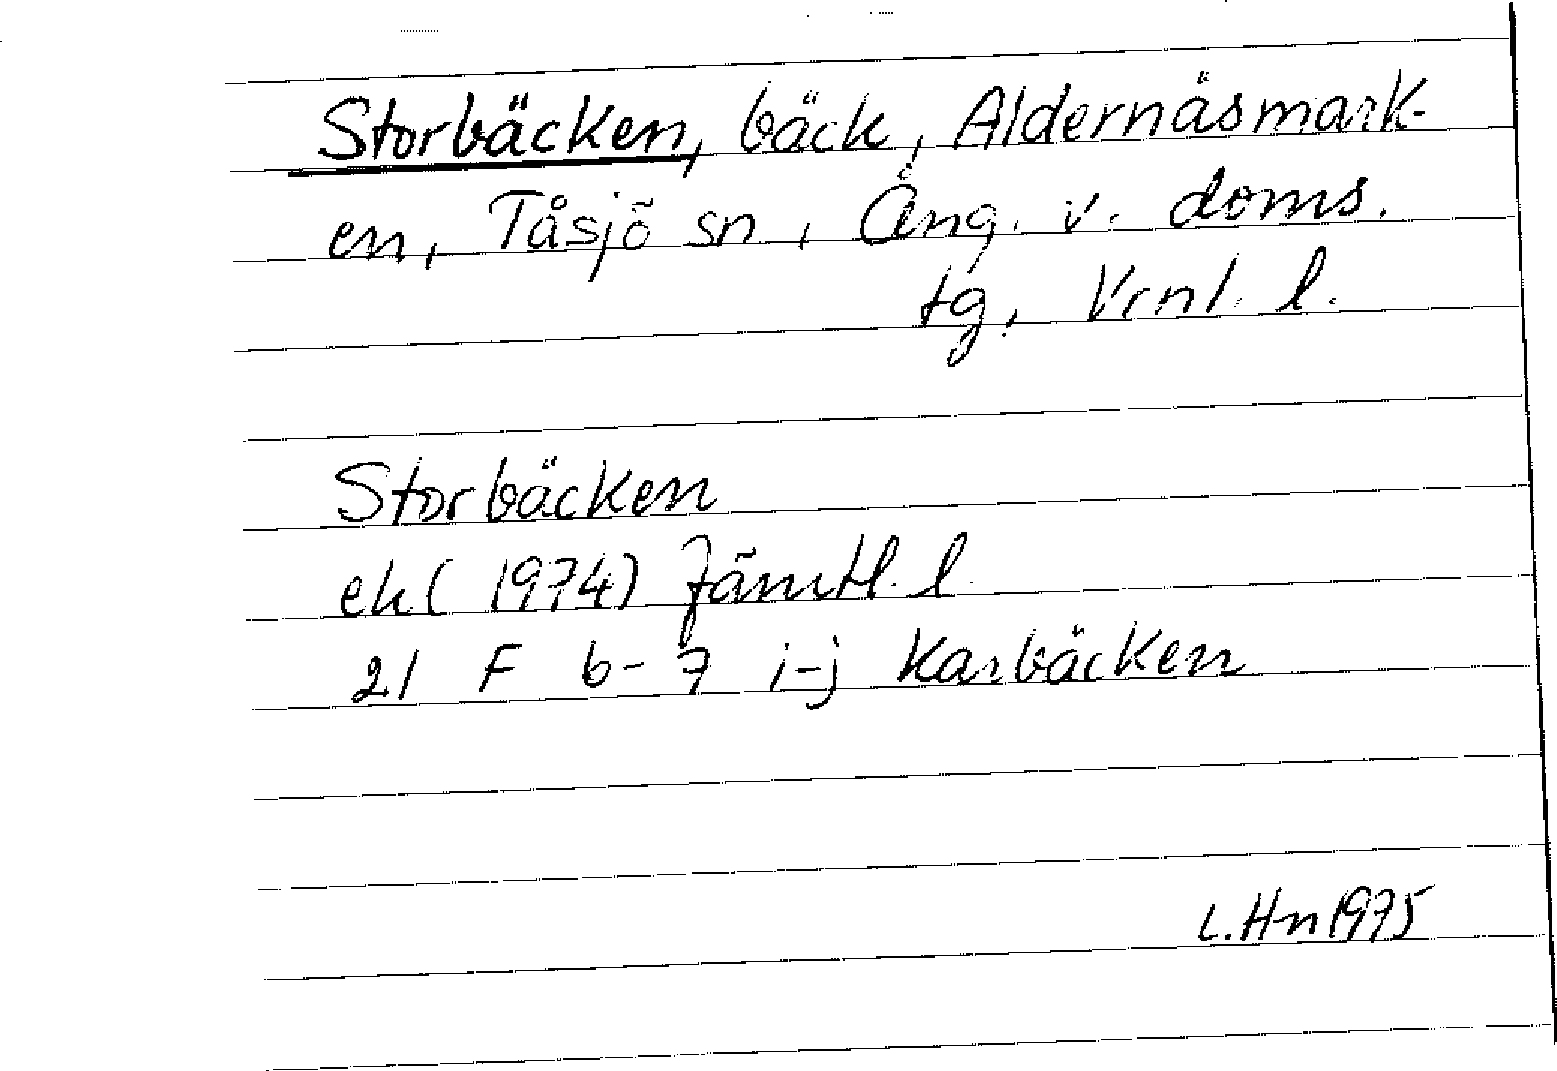 Storbäcken, bäck, Aldernäsmark-
en, Tåsjö sn, Ång. v. doms.
tg, Vrnl. l.
Storbäcken
ek (1974) Jämtl. l.
21 F 6-7 i-j Karbäcken
L.Hn 1975